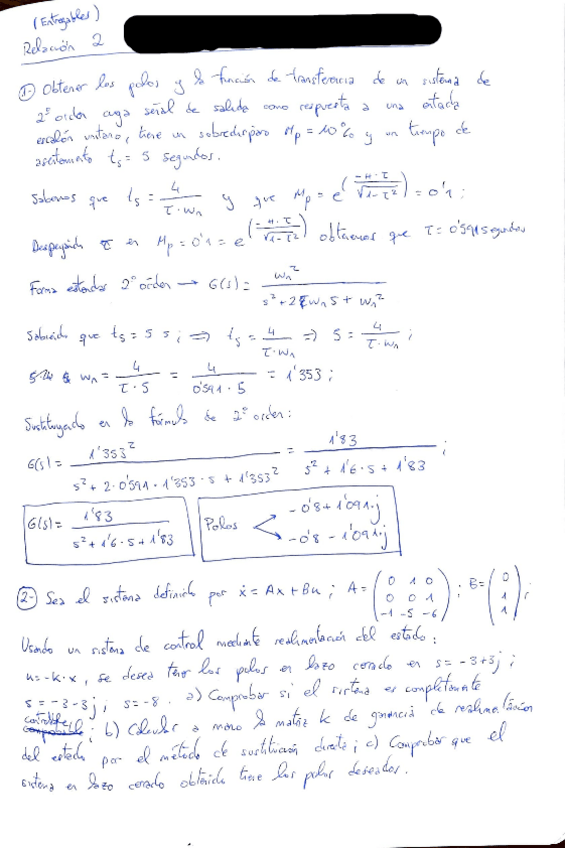 (Entregables)
Relación 2
1- Obtener los polos y la función de transferencia de un sistema de
2º orden cuya señal de salida como respuesta a una entrada
escalón unitario, tiene un sobredisparo Mp = 10% y un tiempo de
asentamiento ts = 5 segundos.
Sabemos que ts = 4/(τ·wn) y que Mp = e^(-π·τ/√(1-τ²)) = 0'1 ;
Despejando τ en Mp = 0'1 = e^(-π·τ/√(1-τ²)) obtenemos que τ = 0'591 segundos
Forma estandar 2º orden → G(s) = wn²/(s² + 2τwn s + wn²)
Sabiendo que ts = 5 s ; ⇒ ts = 4/(τ·wn) ⇒ 5 = 4/(τ·wn) ;
wn = 4/(τ·5) = 4/(0'591·5) = 1'353 ;
Sustituyendo en la fórmula de 2º orden:
G(s) = 1'353²/(s² + 2·0'591·1'353·s + 1'353²) = 1'83/(s² + 1'6·s + 1'83) ;
G(s) = 1'83/(s² + 1'6·s + 1'83)
Polos
-0'8 + 1'091·j
-0'8 - 1'091·j
2- Sea el sistema definido por ẋ = Ax + Bu ; A = (0 1 0; 0 0 1; -1 -5 -6) ; B = (0; 1; 1) ;
Usando un sistema de control mediante realimentación del estado:
u = -k·x, se desea tener los polos en lazo cerrado en s = -3+3j ;
s = -3-3j, s = -8. a) Comprobar si el sistema es completamente
controlable ; b) Calcular a mano la matriz k de ganancia de realimentación
del estado por el método de sustitución directa ; c) Comprobar que el
sistema en lazo cerrado obtenido tiene los polos deseados.